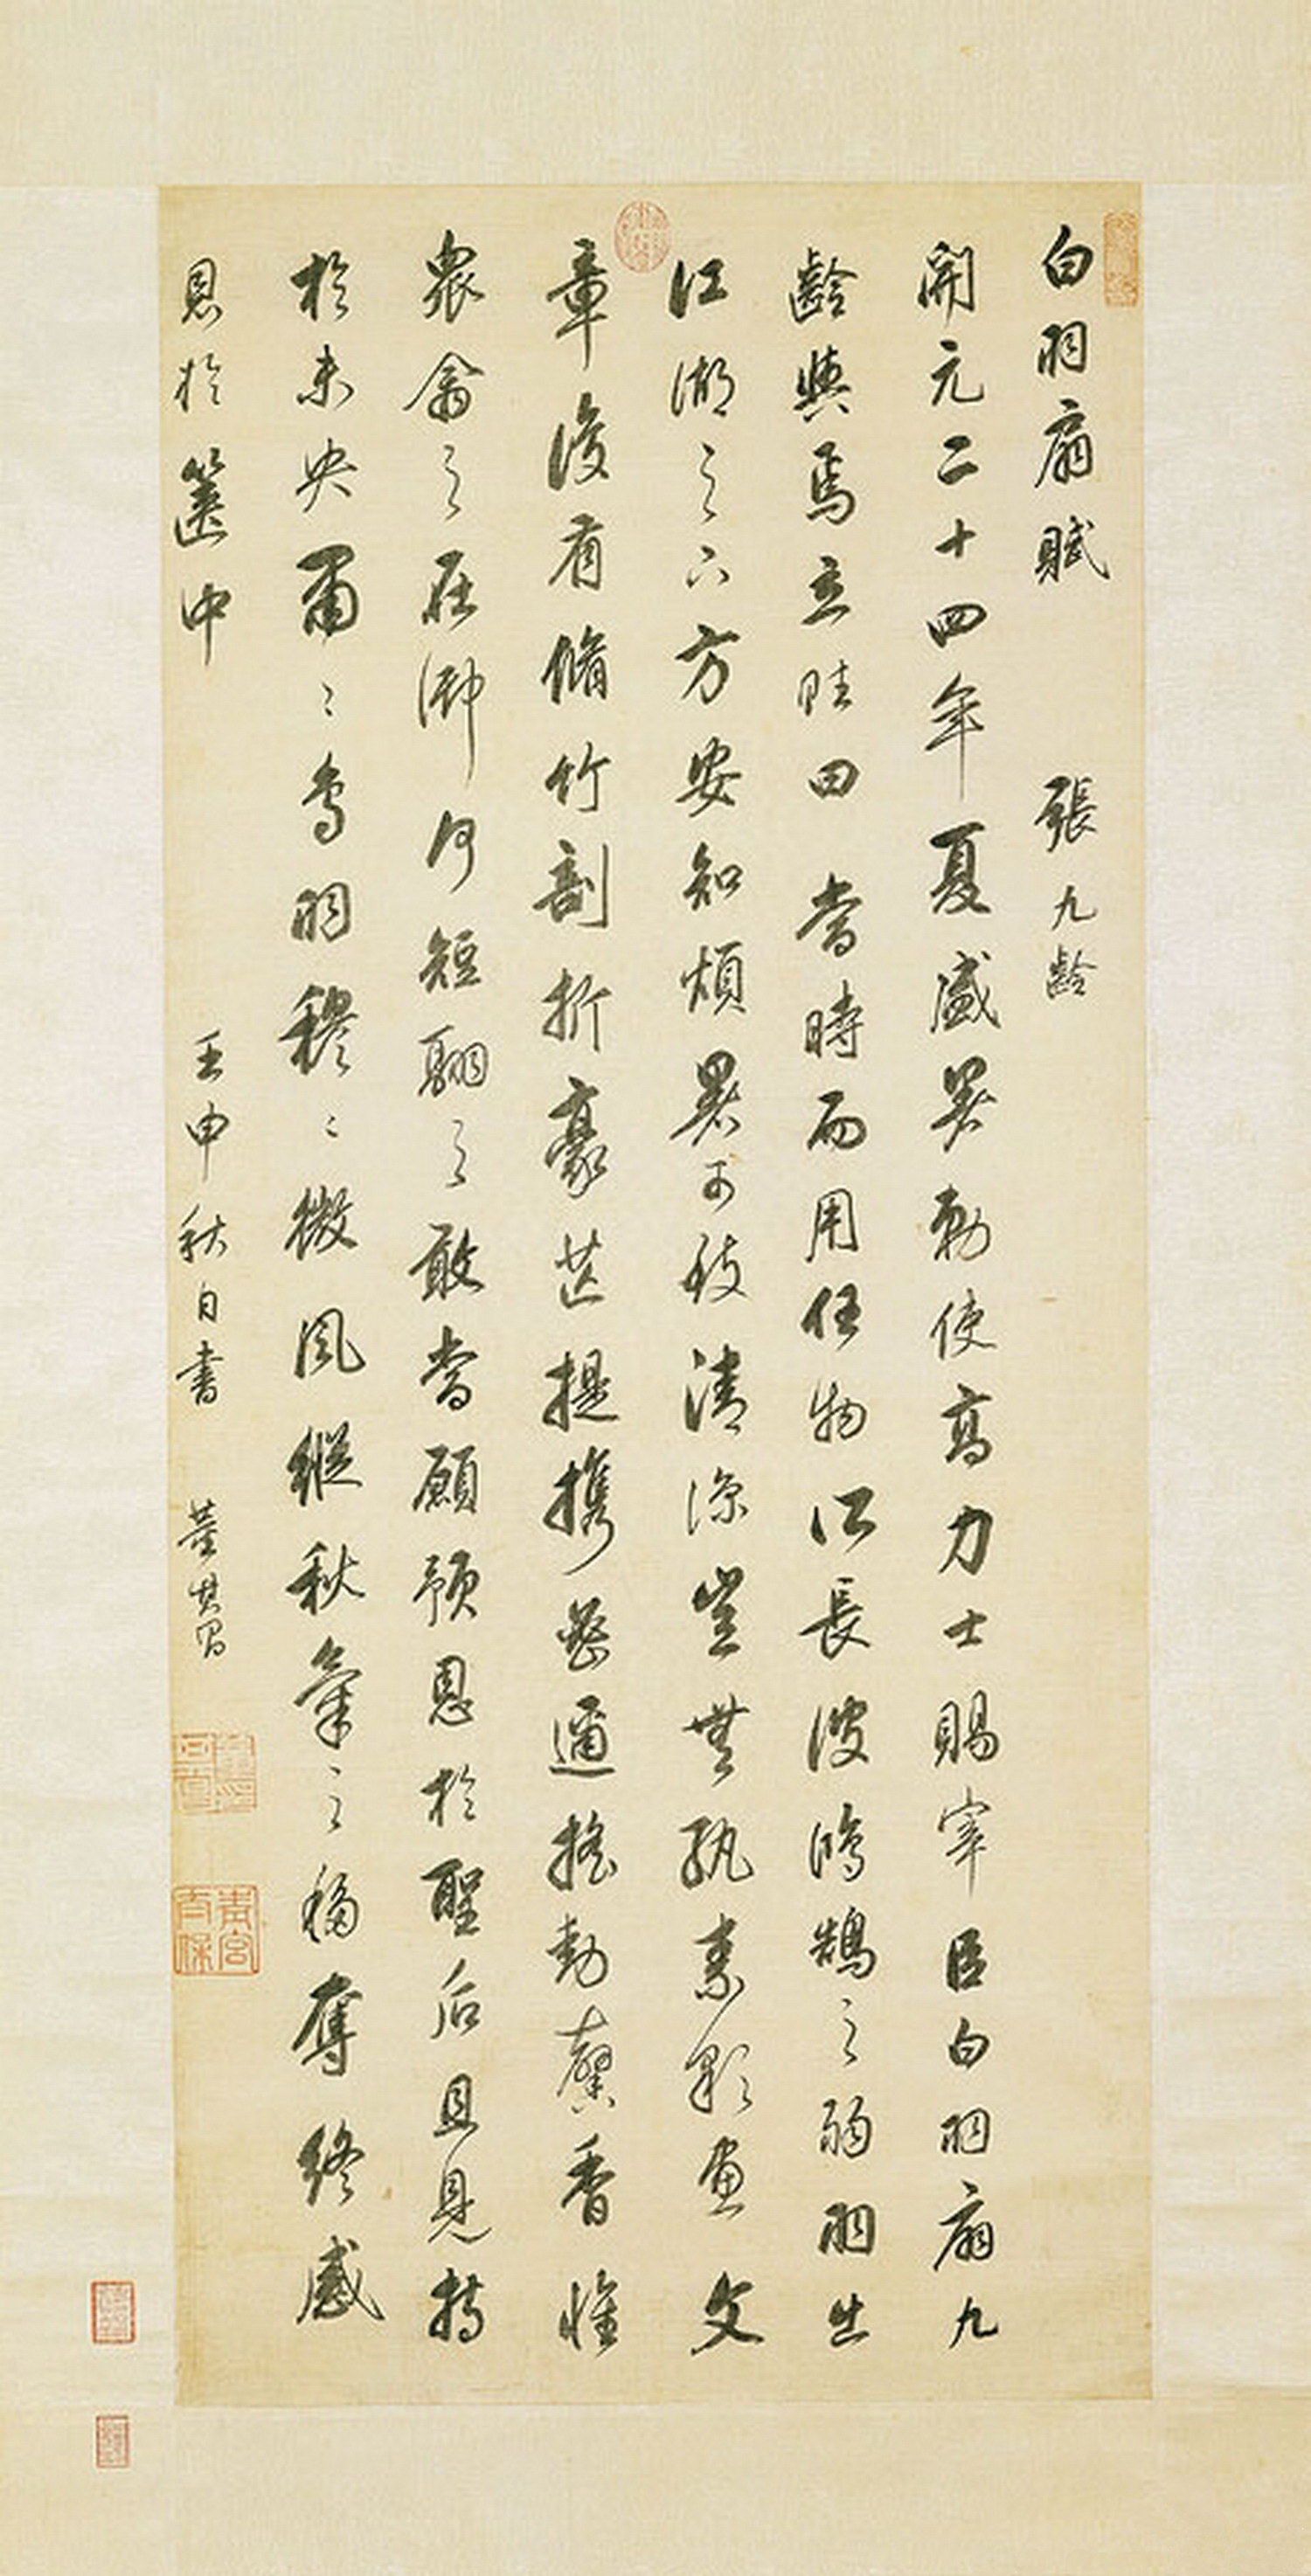 白羽扇賦 張九齡
開元二十四年夏盛暑勅使高力士賜宰臣白羽扇九
齡與焉立賦曰當時而用任物所長彼鴻鵠之弱羽出
江湖之六方安知煩暑可致清涼豈無紈素彩畫文
章復有脩竹剖析豪芒提攜密邇搖動馨香惟
衆禽之在御何短翮之敢當顧預恩於聖后且見持
於未央肅〻鳥羽穆〻微風縱秋氣之移奪終感
恩於篋中
壬申秋日書 董其昌
青宮太保